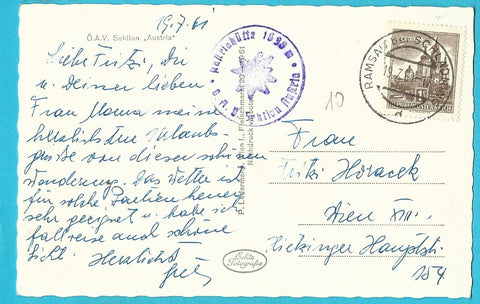 19.7.61
Ö.A.V. Sektion „Austria"
Liebe Fritzi, Dir
u. Deiner lieben
Frau Mama meine
herzlichsten Urlaubs-
grüße von dieser schönen
Wanderung. Das Wetter ist
für solche Partien
sehr geeignet u. habe ich
fallweise auch schöne
Sicht. Herzlichst
Austriahütte 1638 m
Ö.A.V. Sektion Austria
RAMSAU
10
Echte
Fotografie
Frau
Fritzi Horacek
Wien XIII.
Hietzinger Hauptstr.
154